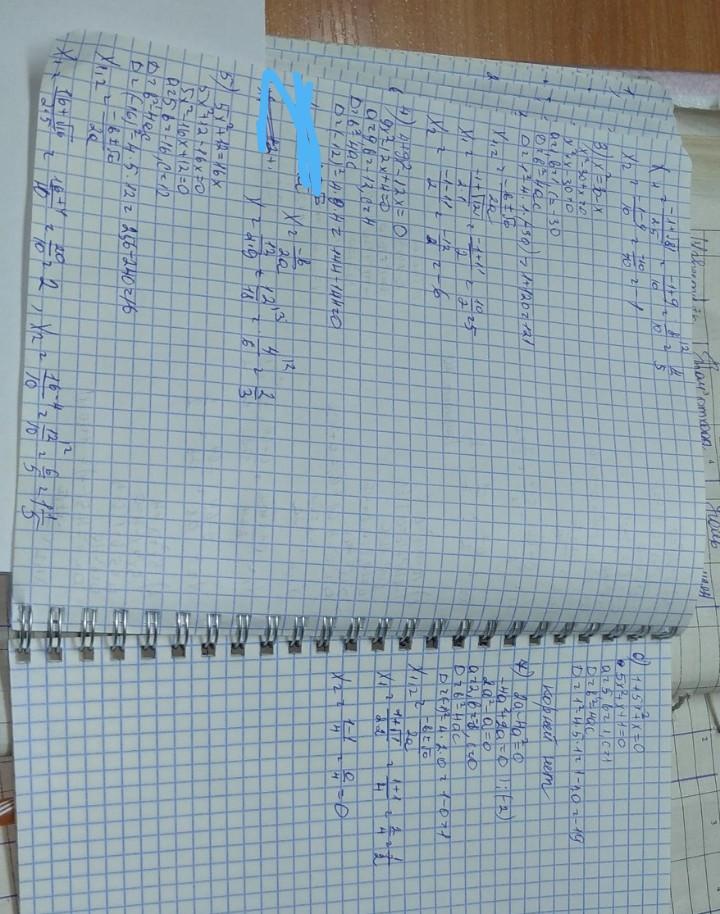 X₁ = (-1+√81)/(2·5) = (-1+9)/10 = 8/10 = 4/5
X₂ = (-1-9)/10 = -10/10 = -1
3) x²=30-x
x²-30+x=0
x²+x-30=0
a=1, b=1, c=-30
D=b²-4ac
D=1²-4·1·(-30)=1+120=121
X₁,₂ = (-b±√D)/2a
X₁ = (-1+√121)/(2·1) = (-1+11)/2 = 10/2 = 5
X₂ = (-1-11)/2 = -12/2 = -6
4) 4+9x²-12x=0
9x²-12x+4=0
a=9, b=-12, c=4
D=b²-4ac
D=(-12)²-4·9·4=144-144=0
X = -b/2a
X = 12/(2·9) = 12/18 = 4/6 = 2/3
5) 5x²+12=16x
5x²+12-16x=0
5x²-16x+12=0
a=5 b=-16, c=12
D=b²-4ac
D=(-16)²-4·5·12=256-240=16
X₁,₂ = (-b±√D)/2a
X₁ = (16+√16)/(2·5) = (16+4)/10 = 20/10 = 2, X₂ = (16-4)/10 = 12/10 = 6/5 = 1 1/5
6) 1+5x²+x=0
5x²+x+1=0
a=5, b=1, c=1
D=b²-4ac
D=1²-4·5·1=1-20=-19
корней нет
7) 2a-4a²=0
-4a²+2a=0 |:(-2)
2a²-a=0
D=b²-4ac
X₁,₂ = (-b±√D)/2a
X₁ = (1+√1)/(2·2) = (1+1)/4 = 2/4 = 1/2
X₂ = (1-1)/4 = 0/4 = 0